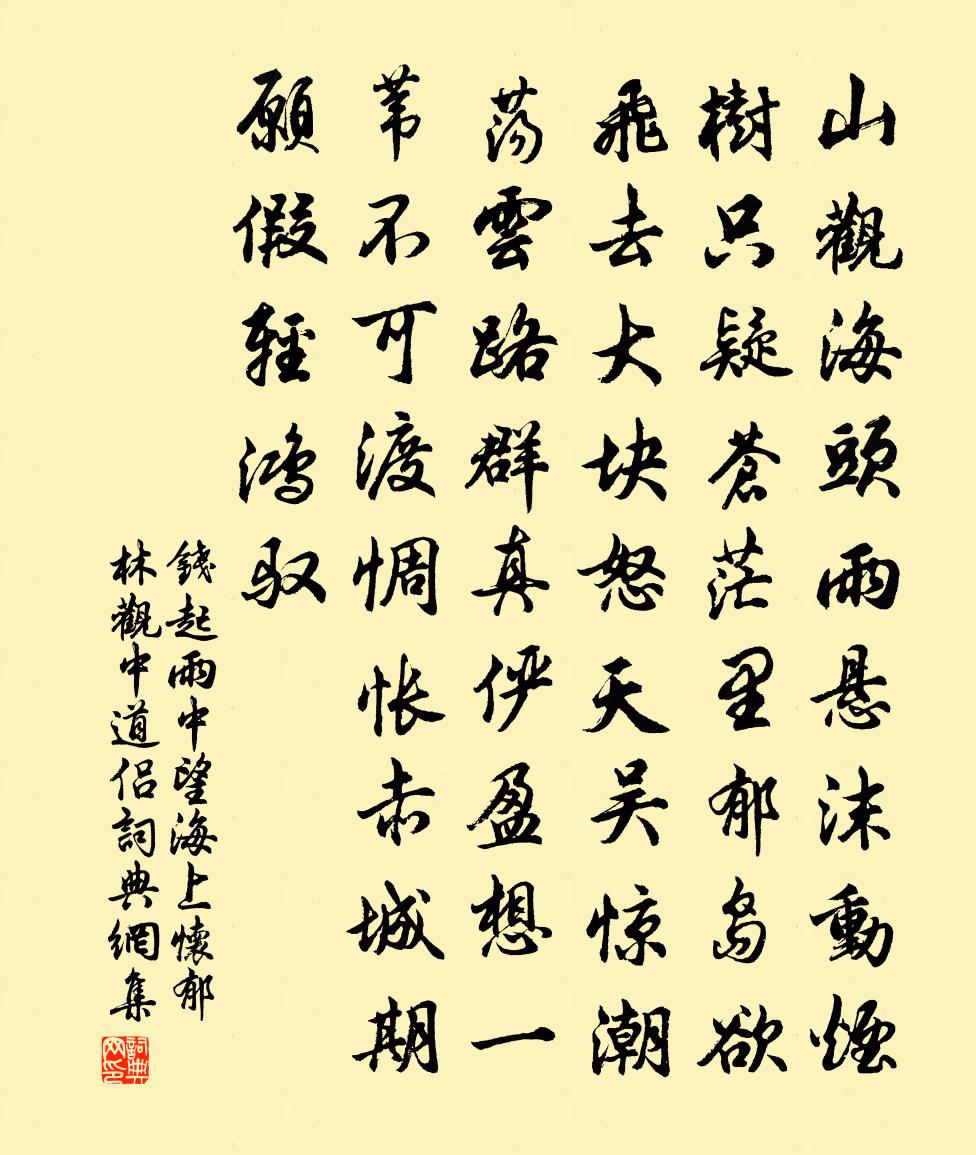 山觀海頭雨悬沫動煙
樹只疑蒼茫里郁岛欲
飛去大块怒天吴惊潮
荡雲路群真俨盈想一
苇不可渡惆怅赤城期
願假輕鸿驭
錢起雨中望海上懷郁
林觀中道侣詞典網集
詞典
网印